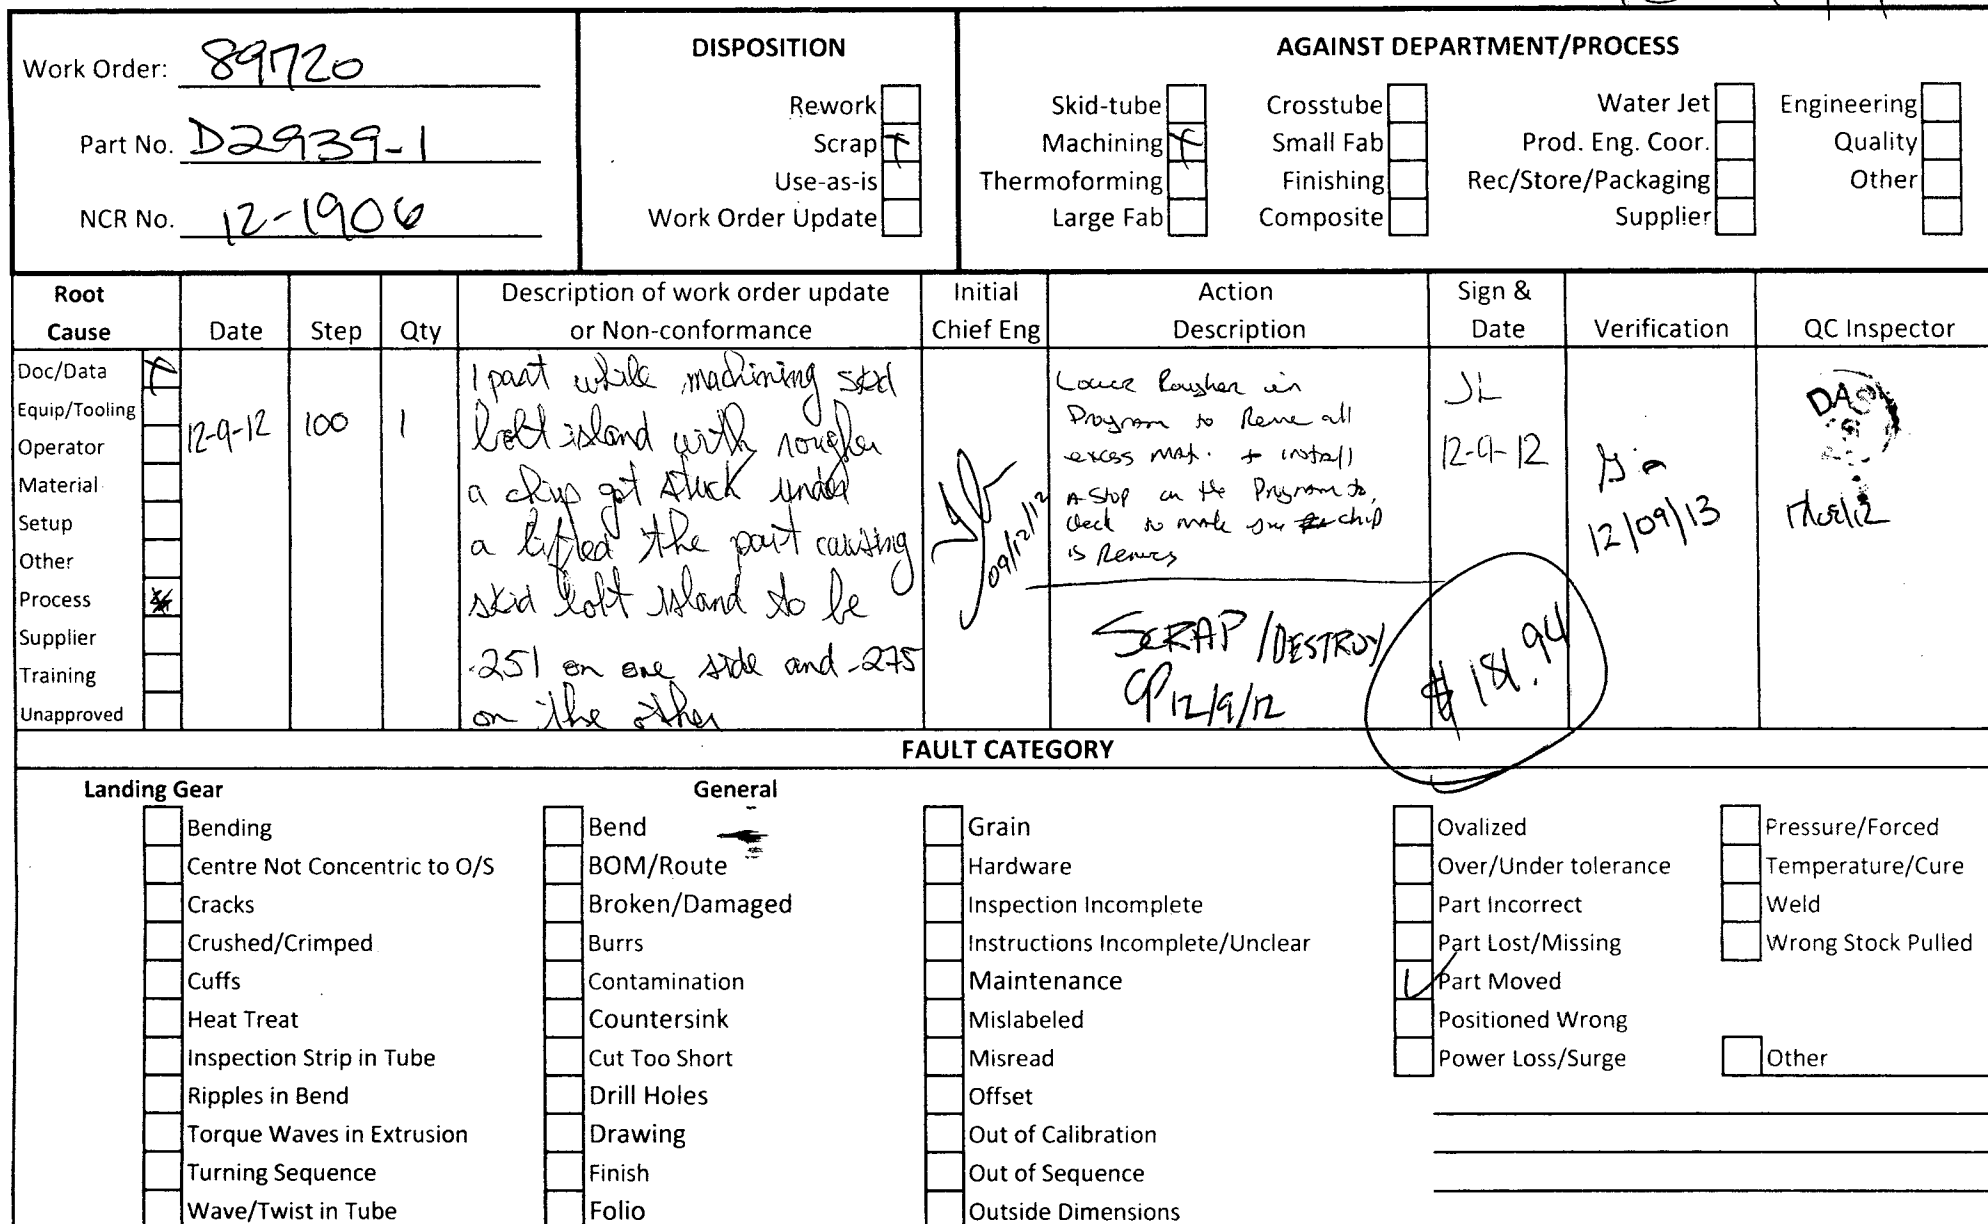 Work Order: 89720
Part No. D2939-1
NCR No. 12-1906
DISPOSITION
Rework
Scrap
Use-as-is
Work Order Update
AGAINST DEPARTMENT/PROCESS
Skid-tube Crosstube Water Jet Engineering
Machining Small Fab Prod. Eng. Coor. Quality
Thermoforming Finishing Rec/Store/Packaging Other
Large Fab Composite Supplier
Root Cause
Date
Step
Qty
Description of work order update
or Non-conformance
Initial
Chief Eng
Action
Description
Sign &
Date
Verification
QC Inspector
Doc/Data
Equip/Tooling
Operator
Material
Setup
Other
Process
Supplier
Training
Unapproved
12-9-12
100
1
1 part while machining skid
bolt island with rougher
a chip got stuck under
a lifted the part causing
skid bolt island to be
.251 on one side and .275
on the other
09/12/12
Lower Rougher in
Program to Remve all
excess mat. + install
A Stop in the Program to
check to make sure chip
is
SCRAP /DESTROY
CP 12/9/12
JL
12-9-12
$181.94
12/09/13
DAS
FAULT CATEGORY
Landing Gear
Bending
Centre Not Concentric to O/S
Cracks
Crushed/Crimped
Cuffs
Heat Treat
Inspection Strip in Tube
Ripples in Bend
Torque Waves in Extrusion
Turning Sequence
Wave/Twist in Tube
General
Bend
BOM/Route
Broken/Damaged
Burrs
Contamination
Countersink
Cut Too Short
Drill Holes
Drawing
Finish
Folio
Grain
Hardware
Inspection Incomplete
Instructions Incomplete/Unclear
Maintenance
Mislabeled
Misread
Offset
Out of Calibration
Out of Sequence
Outside Dimensions
Ovalized
Over/Under tolerance
Part Incorrect
Part Lost/Missing
Part Moved
Positioned Wrong
Power Loss/Surge
Pressure/Forced
Temperature/Cure
Weld
Wrong Stock Pulled
Other